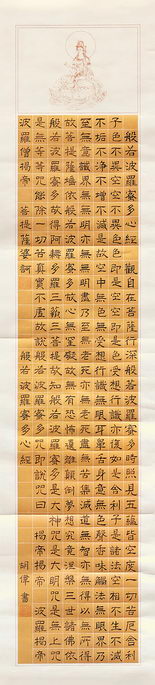 般若波羅蜜多心經 觀自在菩薩行深般若波羅蜜多時照見五蘊皆空度一切苦厄舍利
子色不異空空不異色色即是空空即是色受想行識亦復如是舍利子是諸法空相不生不滅
不垢不淨不增不減是故空中無色無受想行識無眼耳鼻舌身意無色聲香味觸法無眼界乃
至無意識界無無明亦無無明盡乃至無老死亦無老死盡無苦集滅道無智亦無得以無所得
故菩提薩埵依般若波羅蜜多故心無罣礙無罣礙故無有恐怖遠離顛倒夢想究竟涅槃三世諸佛依
般若波羅蜜多故得阿耨多羅三藐三菩提故知般若波羅蜜多是大神咒是大明咒是無上咒
是無等等咒能除一切苦真實不虛故說般若波羅蜜多咒即說咒曰 揭帝揭帝 波羅揭帝
波羅僧揭帝 菩提薩婆訶 般若波羅蜜多心經 胡偉書